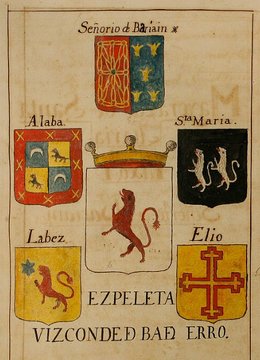 Señorio de Baiain
Alaba.
Sta Maria.
Labez
Elio
EZPELETA
VIZCONDE D BAD ERRO.